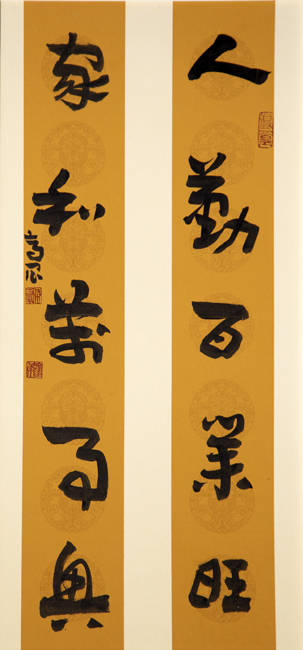 人勤百業旺
家和萬事興